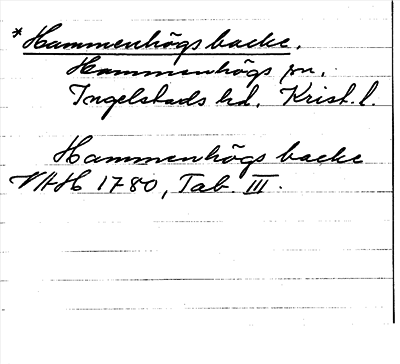 *Hammenhögs backe.
Hammenhögs sn.
Ingelstads hd. Krist. l.
Hammenhögs backe
VHH 1780, Tab. III.